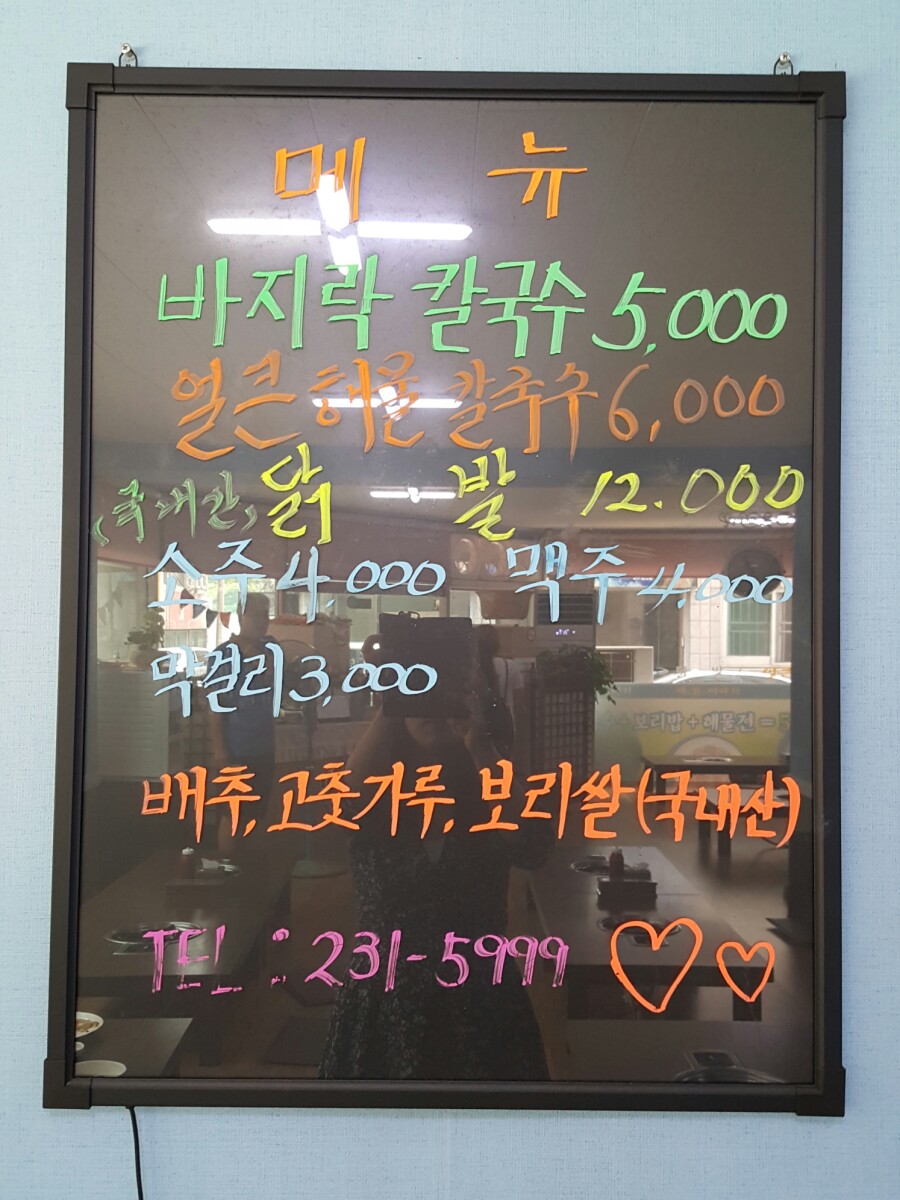 메 뉴
바지락 칼국수 5,000
얼큰해물 칼국수 6,000
(국내산) 닭 발 12.000
소주 4,000 맥주 4,000
막걸리 3,000
보리밥+해물전=5
배추, 고춧가루, 보리쌀 (국내산)
TEL : 231-5999